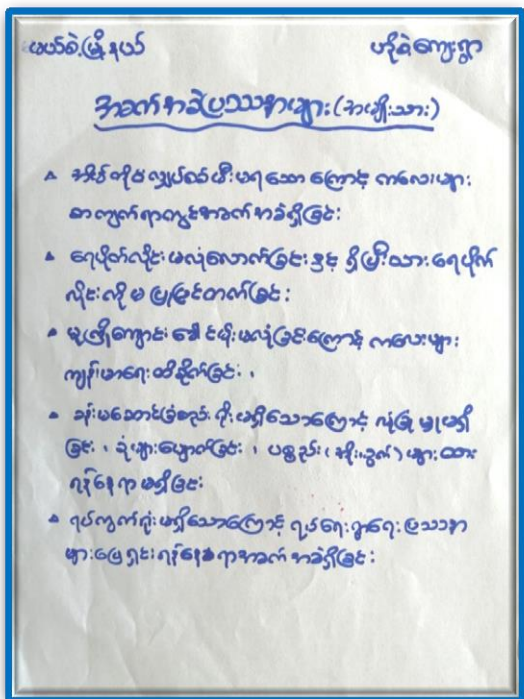 မယ်စဲ့မြို့နယ် ဟိုစဲကျေးရွာ
အခက်အခဲပြဿနာများ (အမျိုးသား)
အိမ်တိုင်းလျှပ်စစ်မီးမရသောကြောင့် ကလေးများ
စာကျက်ရာတွင်အခက်အခဲရှိခြင်း
ရေပိုက်လိုင်းမလုံလောက်ခြင်းနှင့် ရှိပြီးသားရေပိုက်
လိုင်းကိုမပြုပြင်တတ်ခြင်း
မူကြိုကျောင်းခေါင်မိုးမလုံခြင်းကြောင့် ကလေးများ
ကျန်းမာရေးထိခိုက်ခြင်း ၊
ခန်းမဆောင်ခြံစည်းရိုးမရှိသောကြောင့် လုံခြုံမှုမရှိ
ခြင်း ၊ ပျောက်ခြင်း ၊ ပစ္စည်း များထား
ရန်နေရာမရှိခြင်း
ရပ်ကွက်ရုံးမရှိသောကြောင့် ရပ်ရေးရွာရေးပြဿနာ
များဖြေရှင်းရန်နေရာအခက်အခဲရှိခြင်း